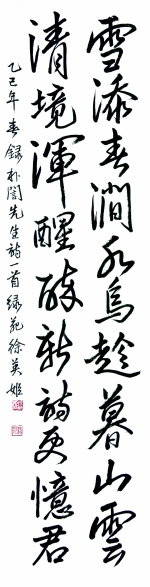 雪添春澗水鳥趁暮山雲
清境渾醒酔新詩更憶君
乙巳年春錄朴誾先生詩一首綠苑徐英姬